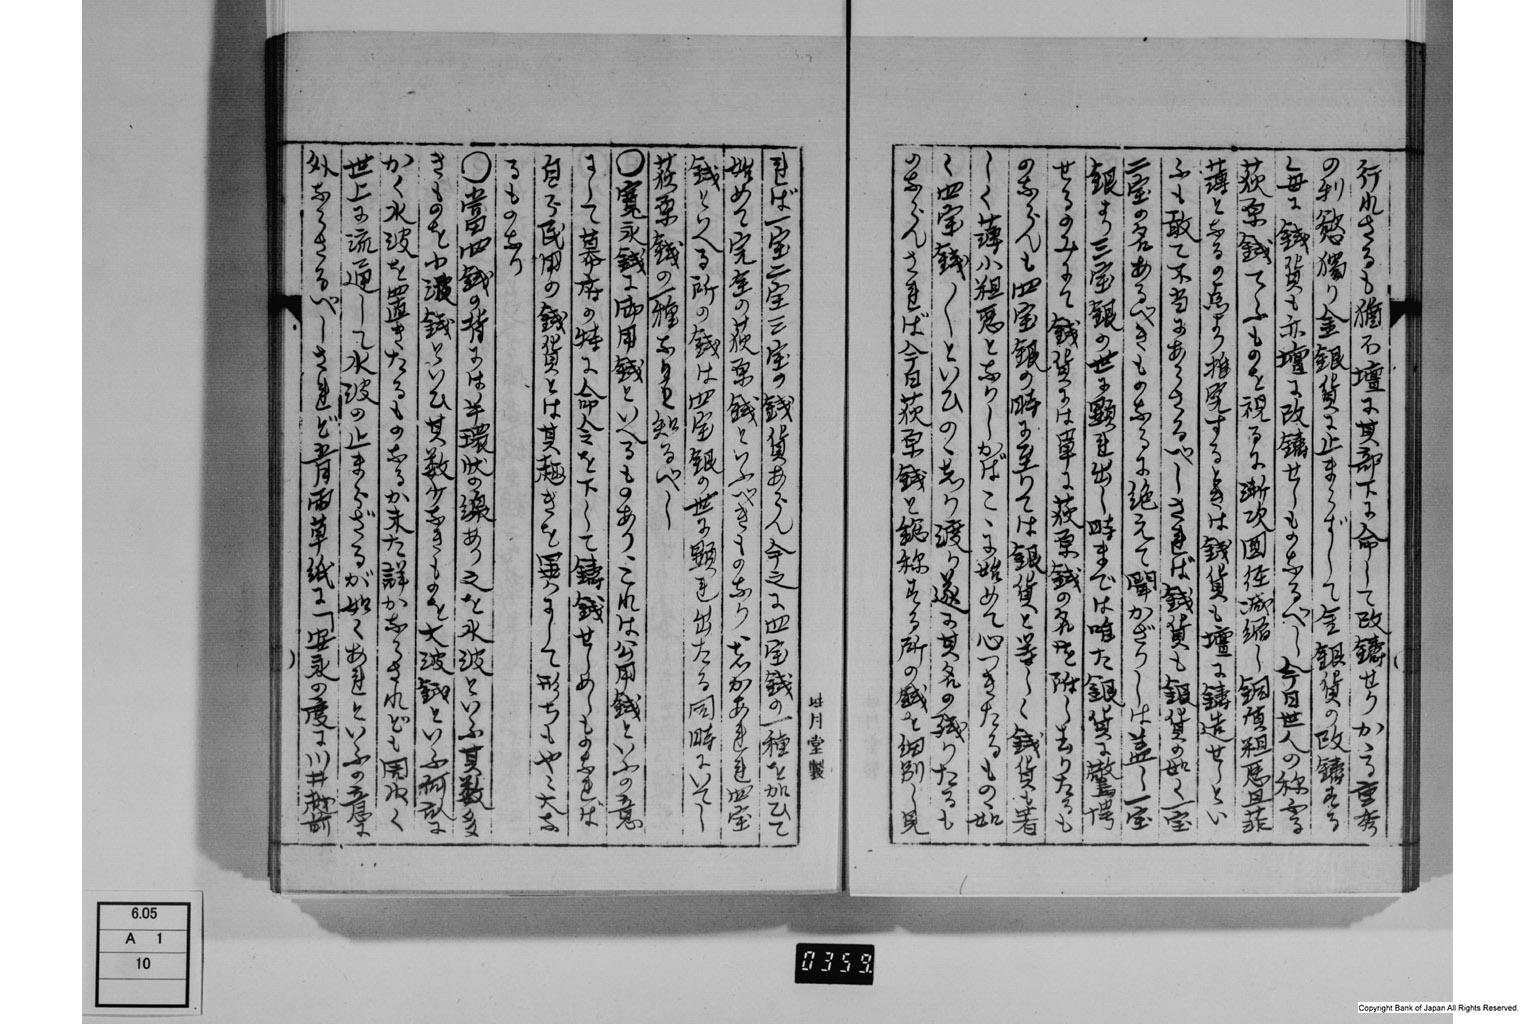 行れさるも猶不壇に其部下に命して改鋳せりかゝる重秀
の利慾獨り金銀貨に止まらずして金銀貨の改鋳する
毎に錢貨も亦壇に改鋳せしものなるべし今日世人の称する
荻原錢てふものを視るに漸次圓径減縮し銅質粗悪且菲
薄となるの点より推究するときは錢貨も壇に鋳造せしとい
ふも敢て不当にあらさるべしされば錢貨も銀貨の如く一宝
二宝の名あるべきものなるに絶えて聞かざりしは蓋し一宝
銀より三宝銀の世に顕れ出し時までは唯た銀貨に驚愕
せるのみにて錢貨には単に荻原錢の名を附し去りたるも
のならんも四宝銀の時に至りては銀貨と等しく錢貨も著
しく薄小粗悪となりしかばこゝに始めて心つきたるものゝ如
く四宝錢〱といひのゝしり遂に其名の残りたるも
のならんされば今日荻原錢と総称する所の錢を細別し見
れば一宝二宝三宝の錢貨あらん今之に四宝錢の一種を加ひて
始めて完全の荻原錢といふべきものなり しかあれば四宝
錢といへる所の錢は四宝銀の世に顕れ出たる同時にいでし
荻原錢の一種なりと知るべし
○寛永錢に御用錢といへるものありこれは公用錢といふの意
にして幕府の特に命令を下して鋳錢せしめしものなれば
自ら民用の錢貨とは其趣きを異にして形ちもやゝ大な
るものなり
○當四錢の背には半環状の線あり之を水波といふ其数多
きものを小波錢といひ其数少なきものを大波錢といふ何故に
かく水波を置きたるものなるか未た詳かならされども圓水く
世上に流通して水波の止まらざるが如くあれといふの意に
外ならさるべしされど五月雨草紙に「安永の度に川井越前
廿月堂製
6.05
A 1
10
0359
Copyright Bank of Japan All Rights Reserved.